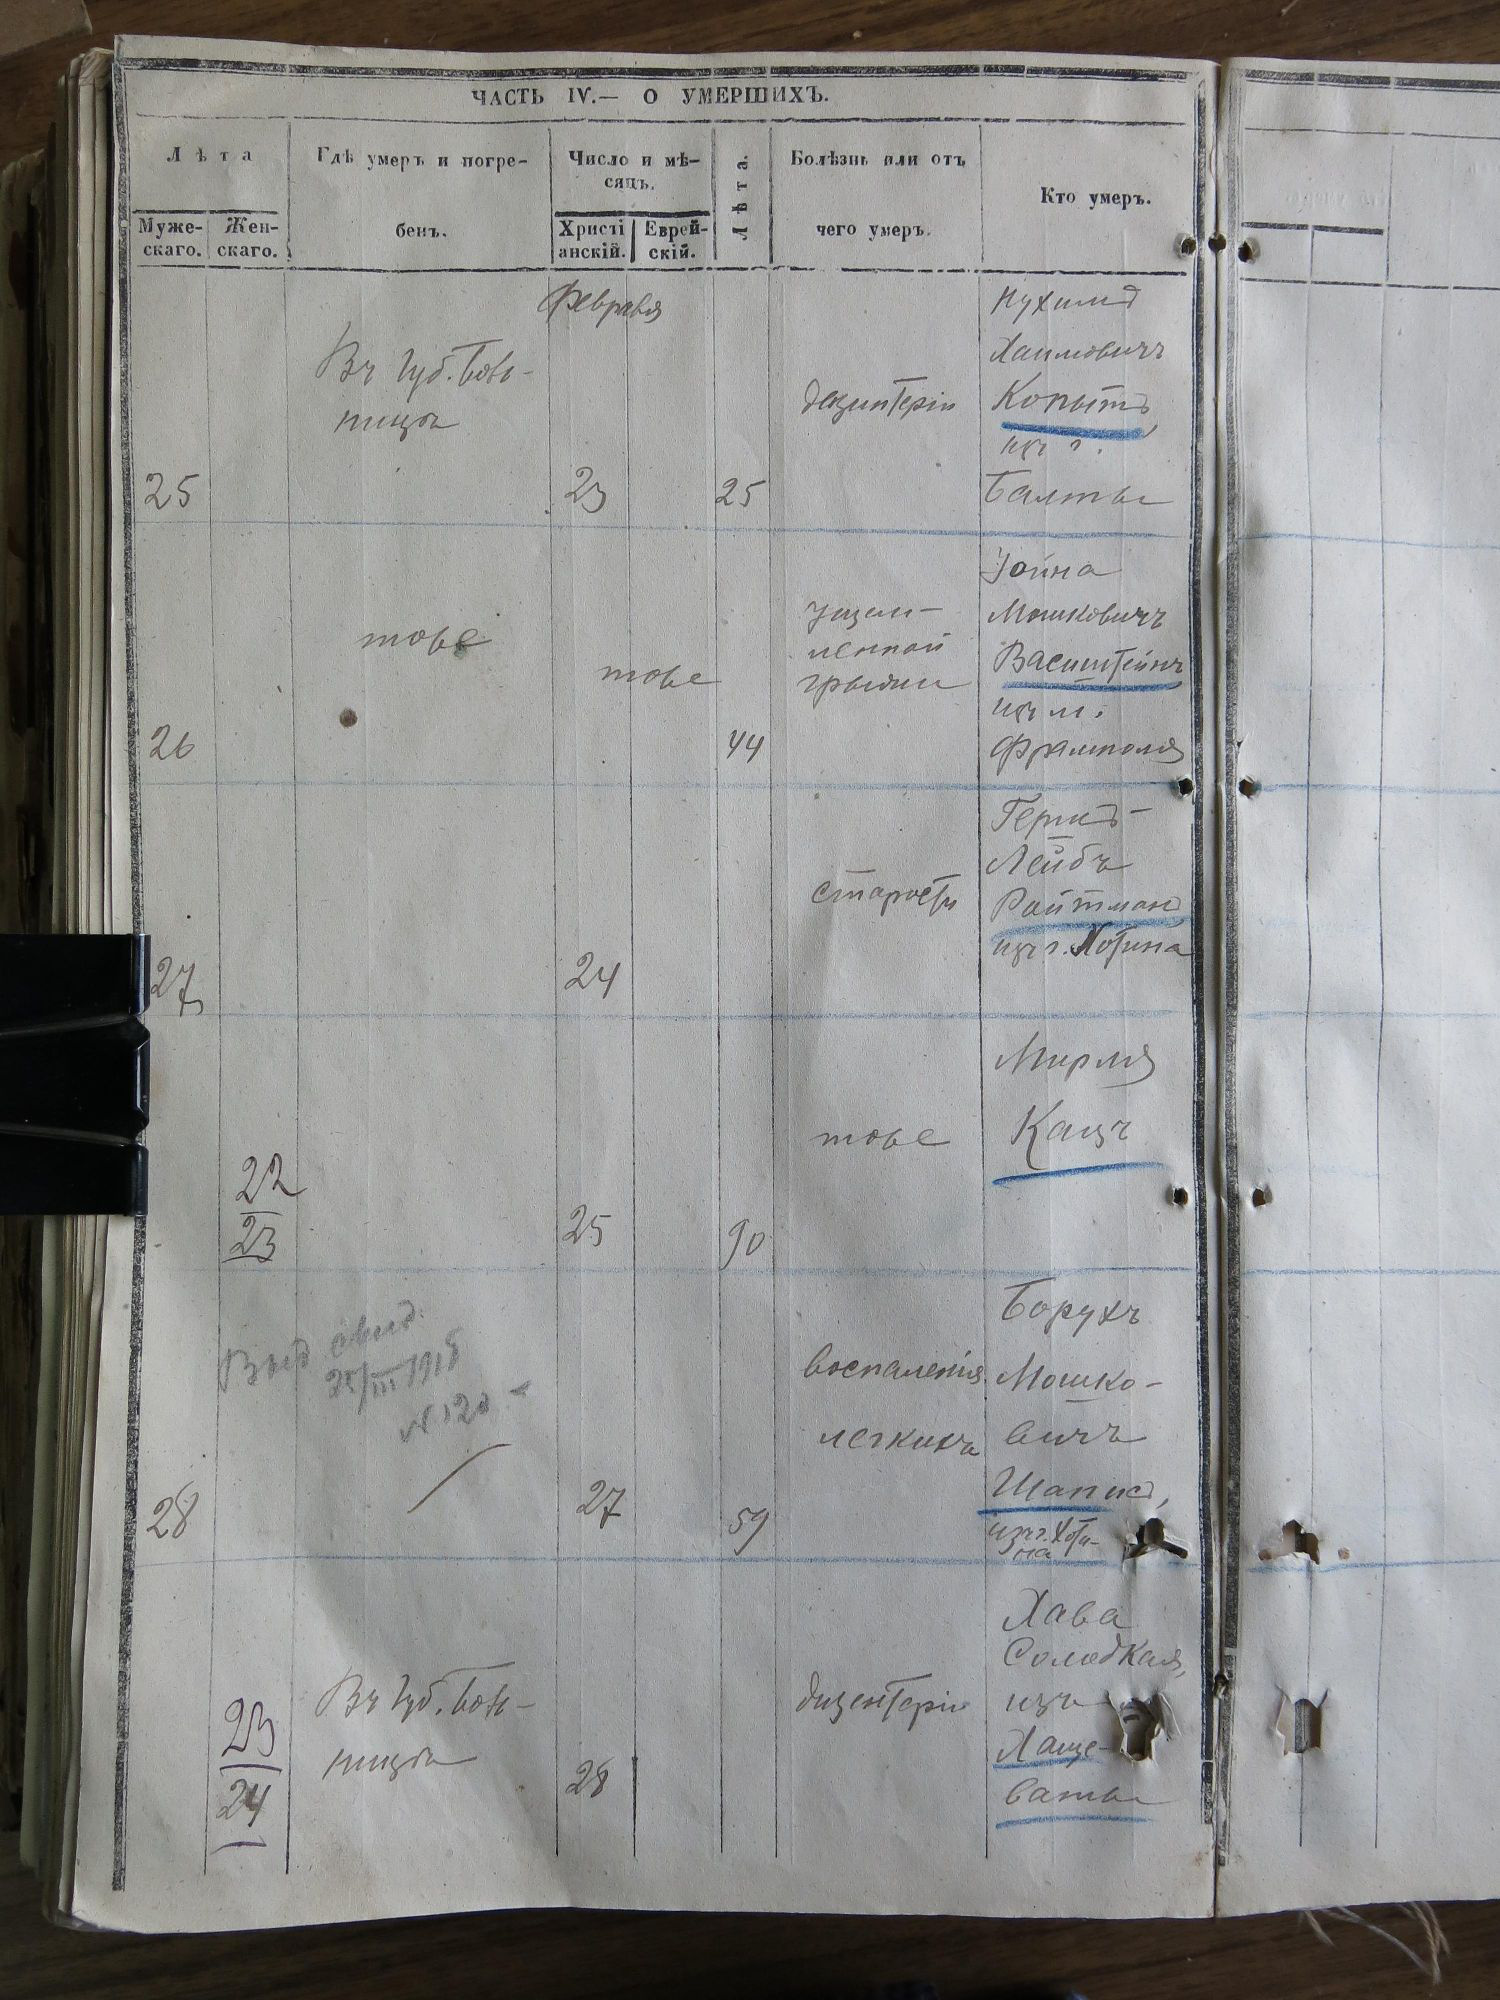 ЧАСТЬ IV.— О УМЕРШИХЪ.
Лѣта
Муже-
скаго.
Жен-
скаго.
Гдѣ умеръ и погре-
бенъ.
Число и мѣ-
сяцъ.
Христі
анскій.
Еврей-
скій.
Лѣта.
Болѣзнь или отъ
чего умеръ.
Кто умеръ.
Февраля
25
Въ Губ. Боль-
ницѣ
23
25
Хаимовичъ
Копытъ,
изъ г.
Балты
26
тоже
тоже
44
ущем-
ленной
грыжи
Іойна
Мошковичъ
Вайнштейнъ
изъ м.
Фрамполя
27
24
старости
Гершъ-
Лейбъ
Райтманъ
изъ г. Хотина
22
23
25
90
тоже
Мирля
Кацъ
Выд свид.
III 1915
N 120
28
27
59
воспаленія
легкихъ
Борухъ
Мошко-
вичъ
Шапиъ,
изъ г. Хоти-
на
23
24
Въ Губ. Боль-
ницѣ
28
дизентеріи
Хава
Солодкая,
изъ
Хаще-
ваты